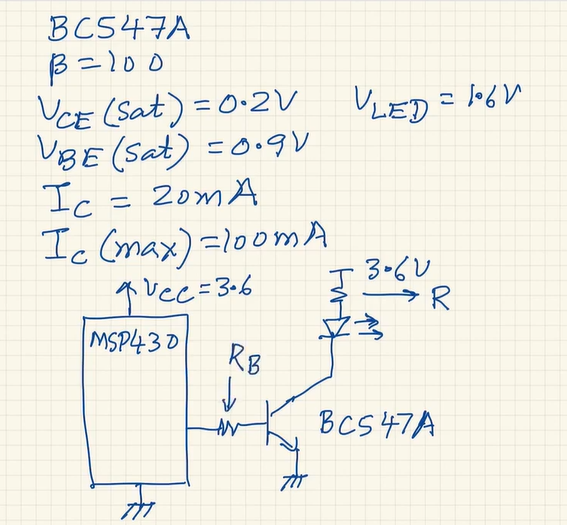 BC547A
β = 100
VCE (sat) = 0.2V
VLED = 1.6V
VBE (sat) = 0.9V
IC = 20mA
IC (max) = 100mA
VCC = 3.6
3.6V
R
MSP430
RB
BC547A